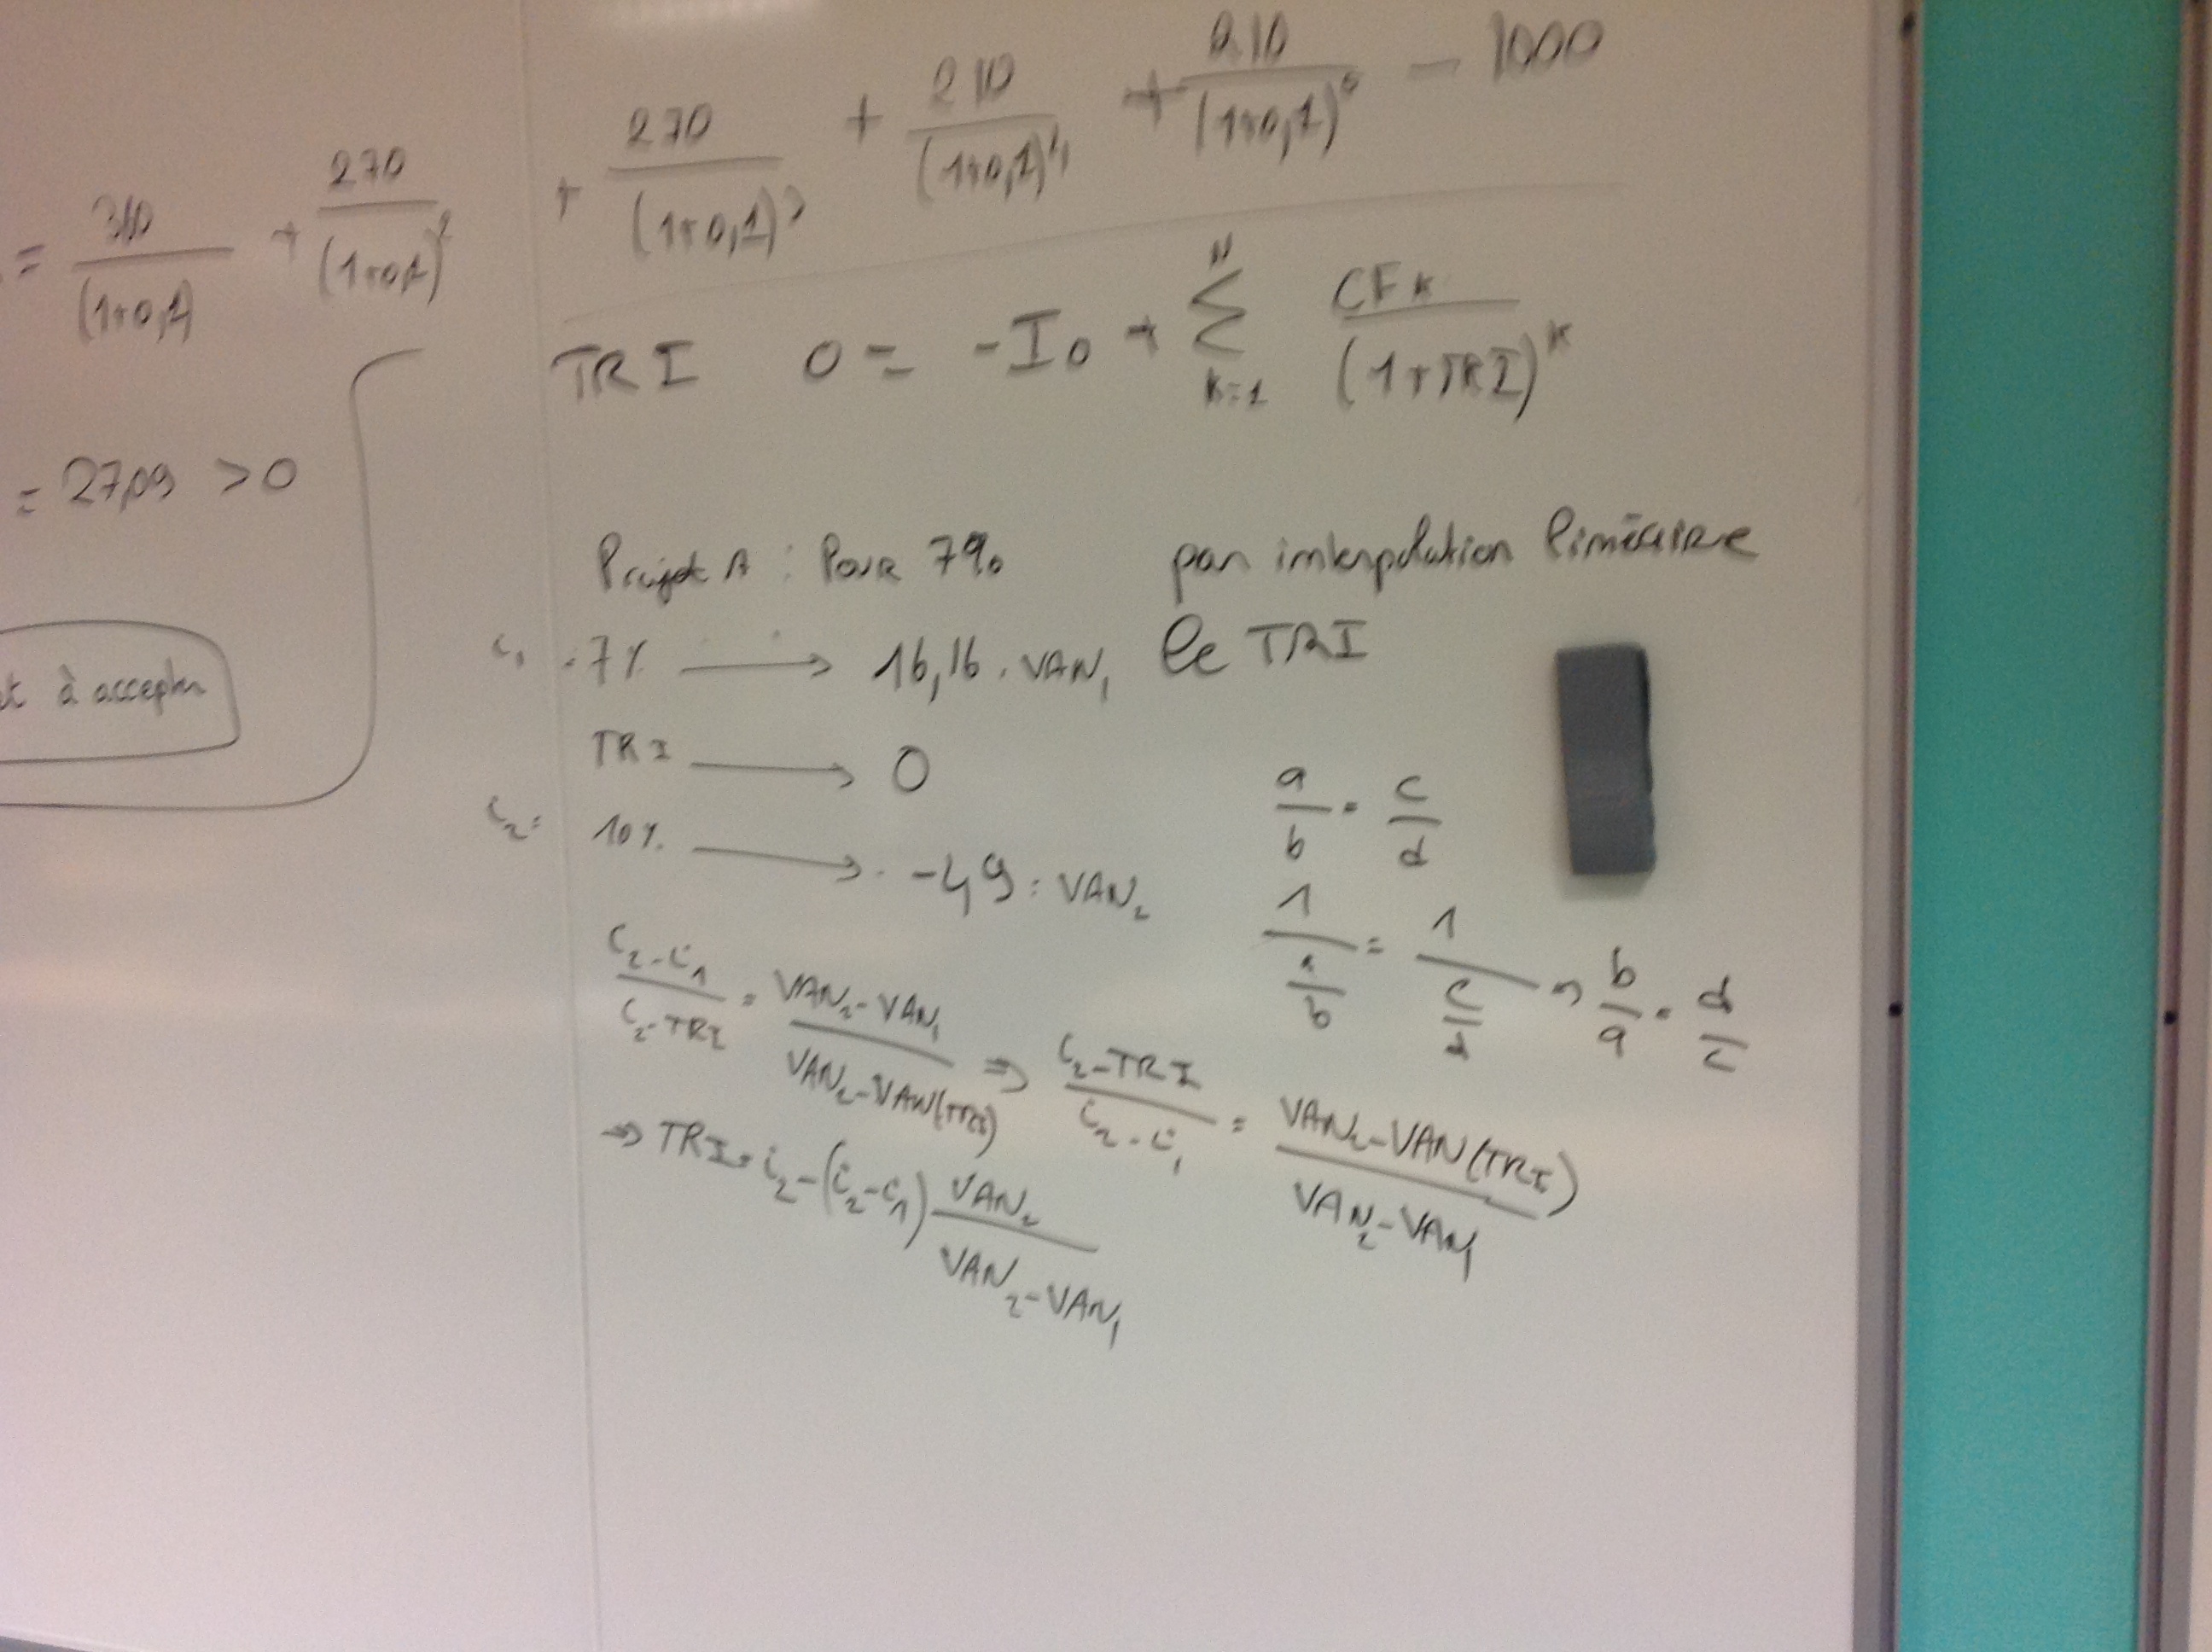 = 310/(1+0,1) + 270/(1+0,1)² + 270/(1+0,1)³ + 210/(1+0,1)⁴ + 210/(1+0,1)⁵ - 1000
TRI 0 = -I₀ + Σ_{k=1}^{N} CFk/(1+TRI)^k
= 27,09 > 0
Projet A : Pour 7% par interpolation linéaire
i₁ = 7% → 16,16 : VAN₁ le TRI
à accepter
TRI → 0
i₂ = 10% → -49 : VAN₂
a/b = c/d
1/(a/b) = 1/(c/d) ⇒ b/a = d/c
(i₂-i₁)/(i₂-TRI) = (VAN₂-VAN₁)/(VAN₂-VAN(TRI)) ⇒ (i₂-TRI)/(i₂-i₁) = (VAN₂-VAN(TRI))/(VAN₂-VAN₁)
⇒ TRI = i₂-(i₂-i₁) VAN₂/(VAN₂-VAN₁)